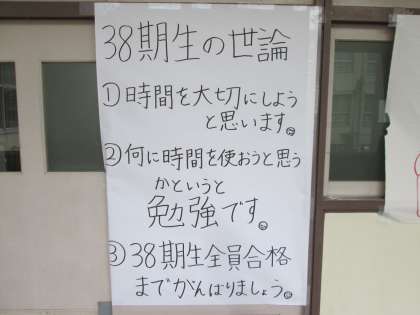 38期生の世論
①時間を大切にしよう
と思います。
②何に時間を使おうと思う
かというと
勉強です。
③38期生全員合格
までがんばりましょう。